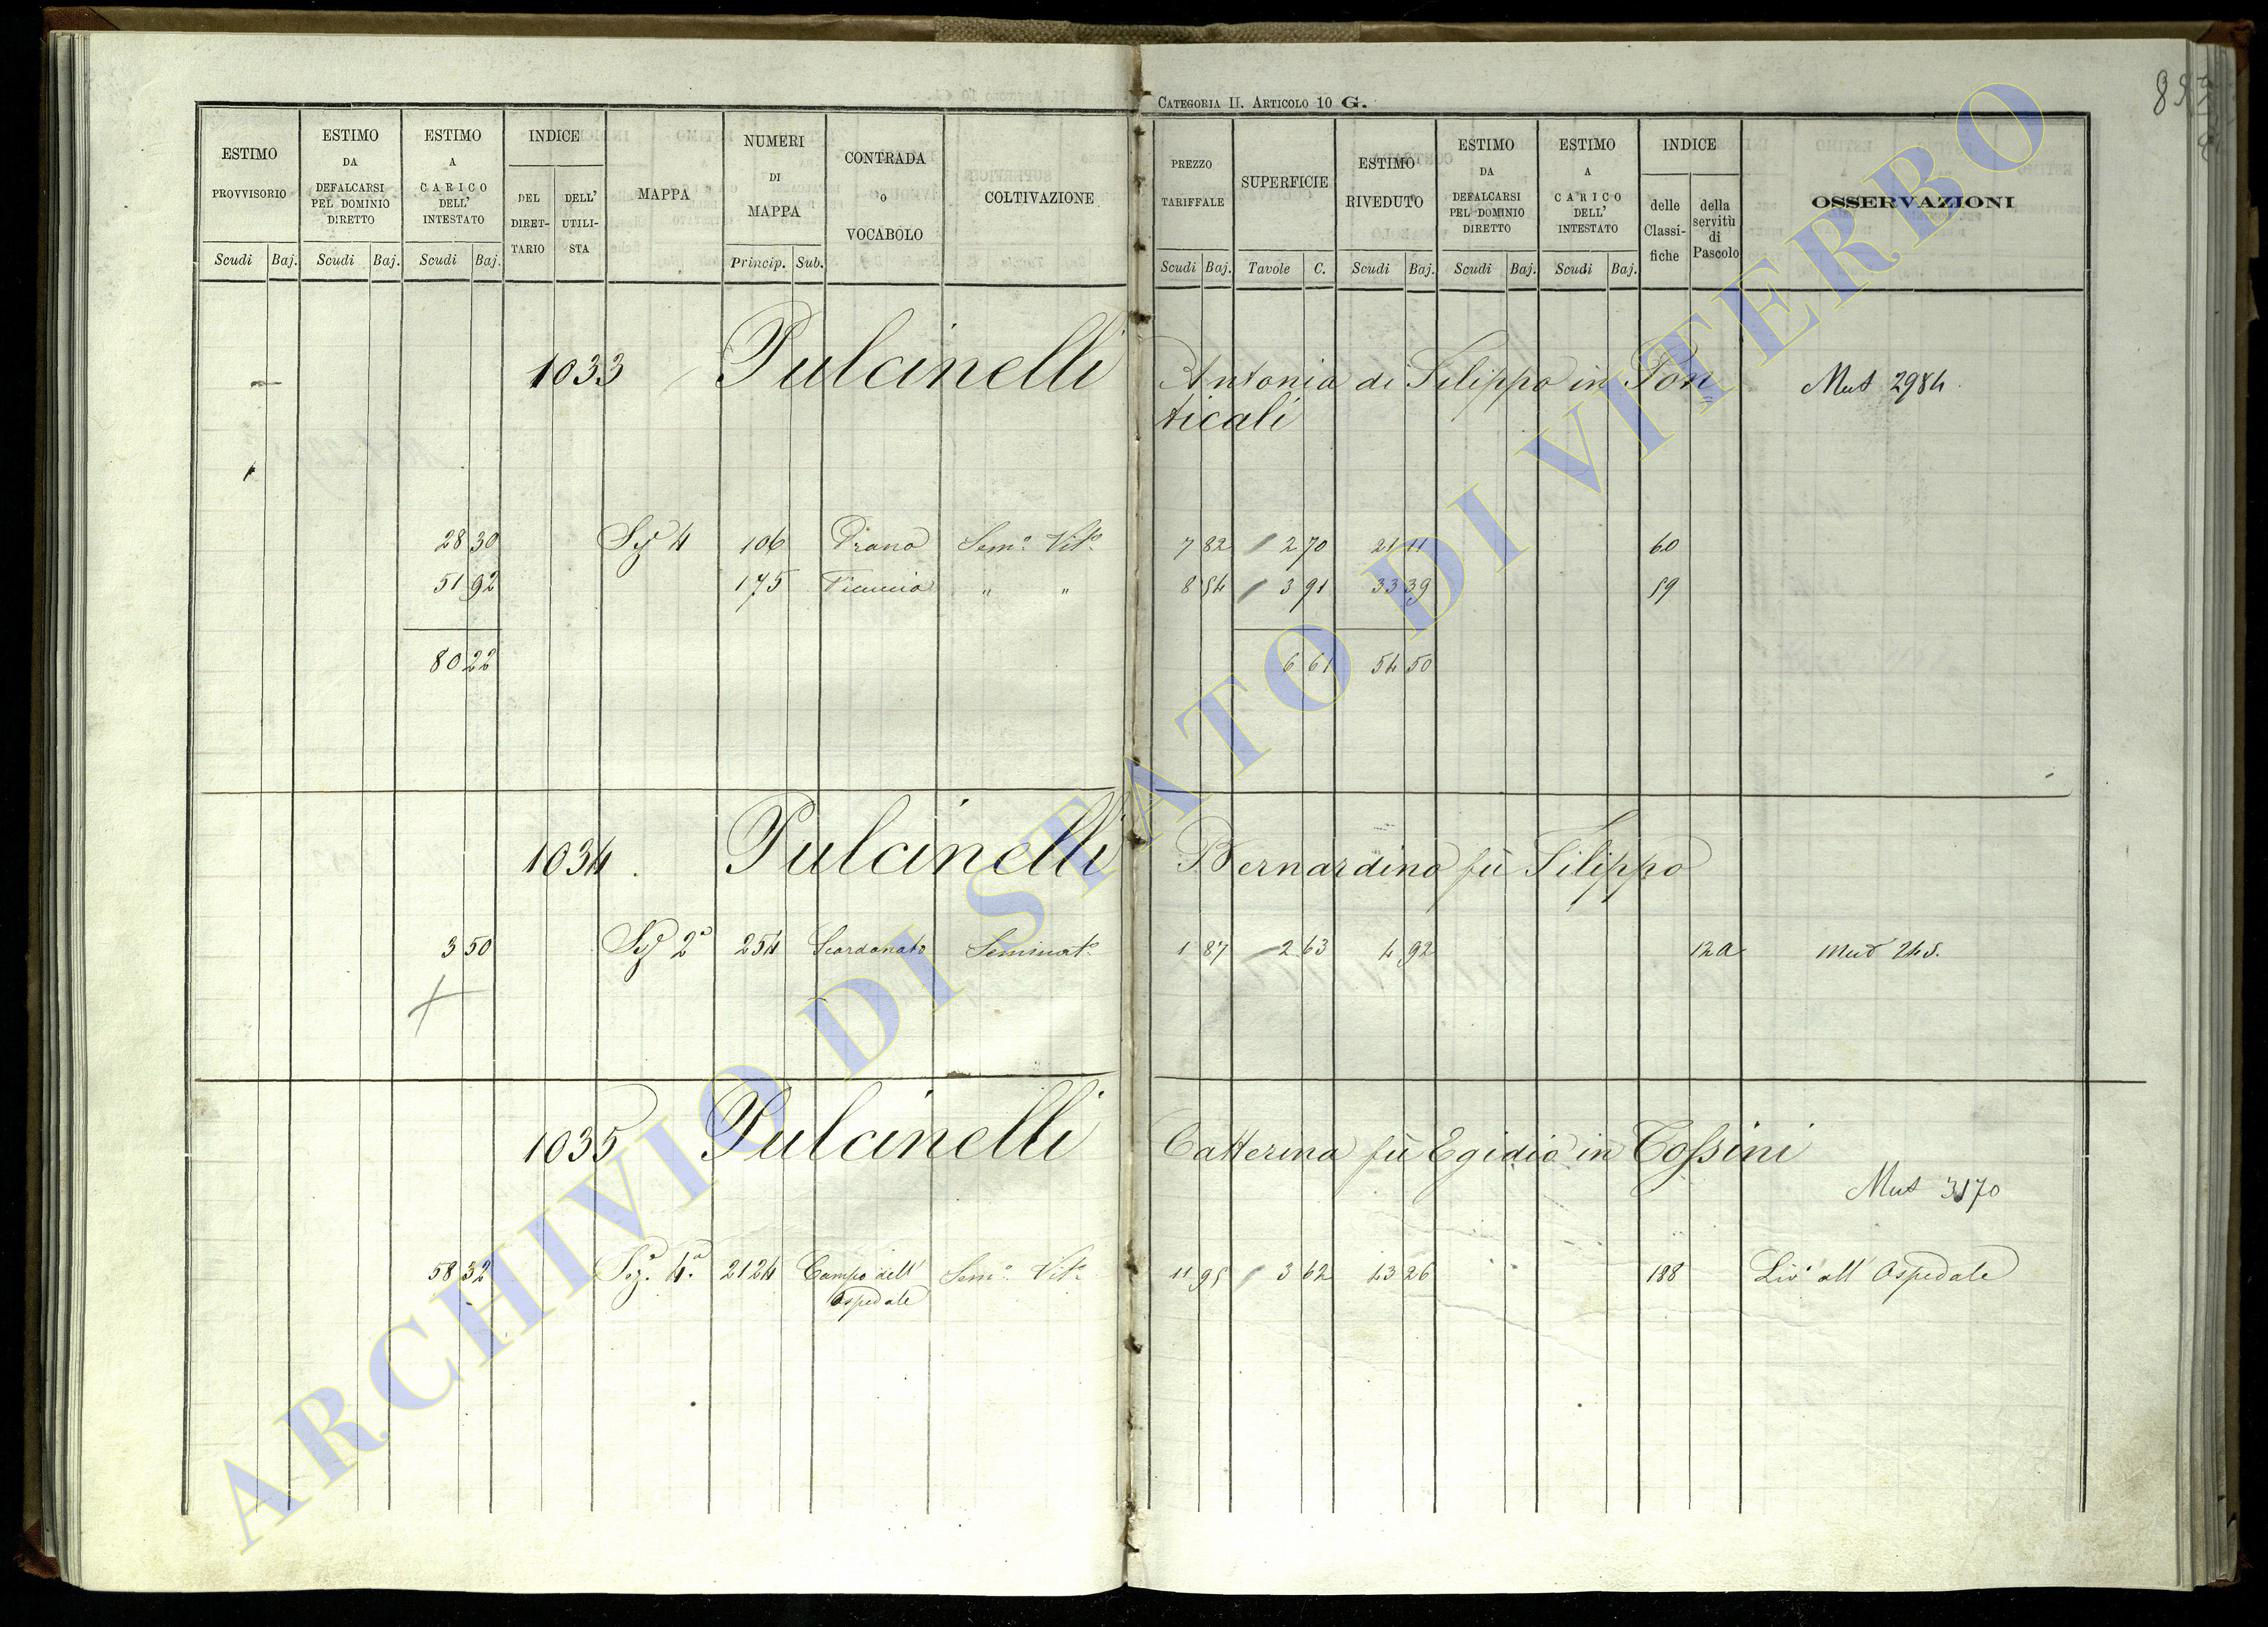 CATEGORIA II. ARTICOLO 10 G.
ESTIMO PROVVISORIO
ESTIMO DA DEFALCARSI PEL DOMINIO DIRETTO
ESTIMO A CARICO DELL' INTESTATO
INDICE
DEL DIRET-TARIO
DELL' UTILI-STA
MAPPA
NUMERI DI MAPPA
CONTRADA O VOCABOLO
COLTIVAZIONE
PREZZO TARIFFALE
SUPERFICIE
ESTIMO RIVEDUTO
ESTIMO DA DEFALCARSI PEL DOMINIO DIRETTO
ESTIMO A CARICO DELL' INTESTATO
INDICE
delle Classi-fiche
della servitù di Pascolo
OSSERVAZIONI
Scudi Baj. Scudi Baj. Scudi Baj. Princip. Sub. Scudi Baj. Tavole C. Scudi Baj. Scudi Baj. Scudi Baj.
1033 Pulcinelli Antonia di Filippo in Pon= Mut 2984
ticali
28 30 Sez 4 106 Piano Sem.o Vit.o 7 82 2 70 21 11 60
51 92 175 " " 8 54 3 91 33 39 59
80 22 6 61 54 50
1034. Pulcinelli Bernardino fù Filippo
3 50 Sez 2a 254 Scardonato Seminat.o 1 87 2 63 4 92 12a Mut 245.
1035 Pulcinelli Catterina fù Egidio in Cossini
Mut 3170
58 32 Sez.a 4.a 2124 Campo dell' Sem.o Vit.o 11 95 3 62 43 26 188 Liv.o all' Ospedale
Ospedale
ARCHIVIO DI STATO DI VITERBO